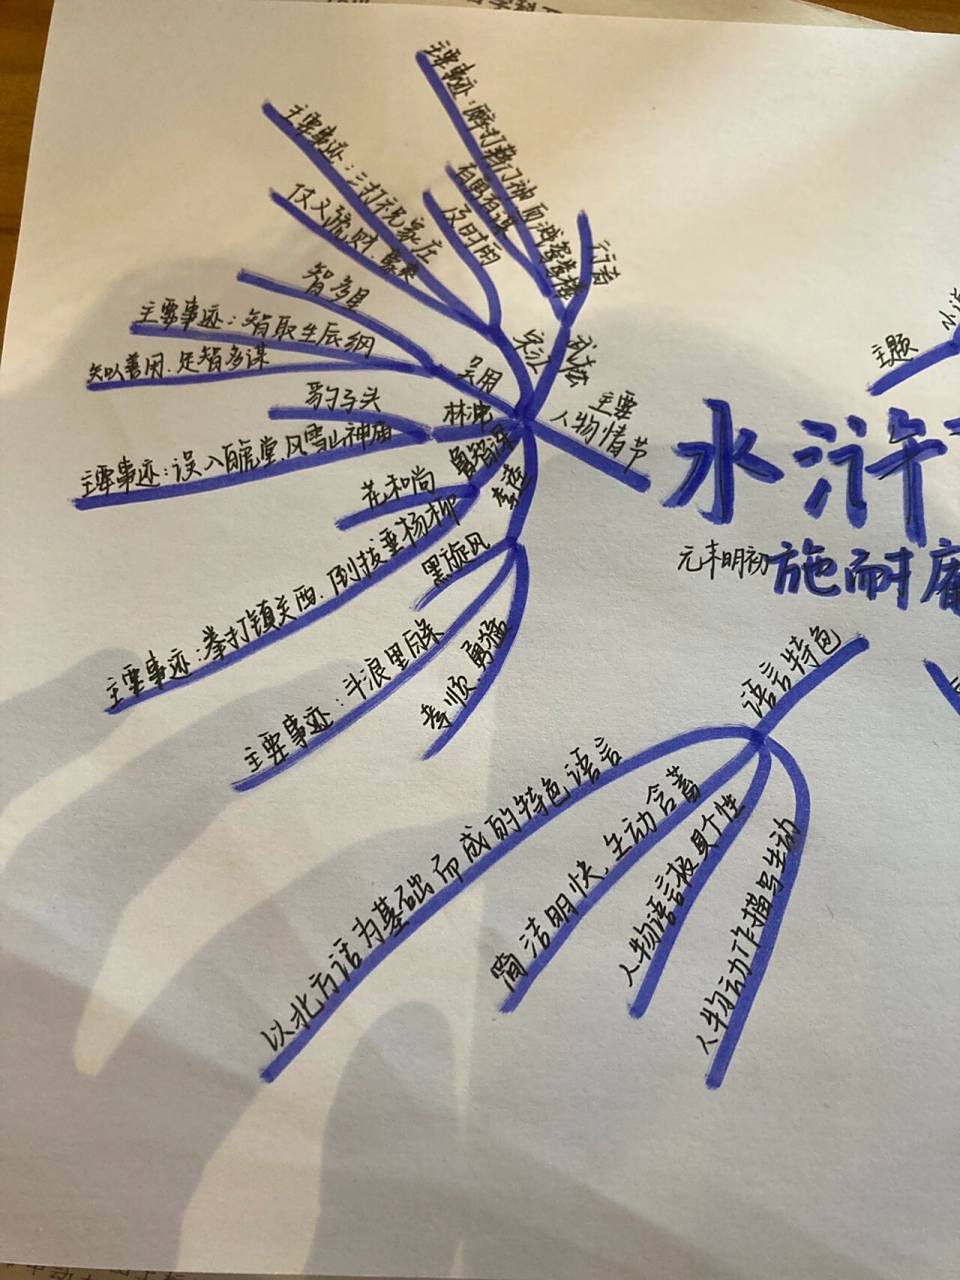 水浒
元末明初
施耐庵
主题
主要
人物情节
武松
行者
有勇有谋
主要事迹：醉打蒋门神
宋江
及时雨
仗义疏财
主要事迹：三打祝家庄
吴用
智多星
主要事迹：智取生辰纲
足智多谋
林冲
豹子头
主要事迹：误入白虎堂、风雪山神庙
鲁智深
花和尚
主要事迹：拳打镇关西、倒拔垂杨柳
李逵
黑旋风
主要事迹：斗浪里白条
孝顺 勇猛
语言特色
以北方话为基础而成的特色语言
简洁明快 生动含蓄
人物语言极具个性
人物动作描写生动